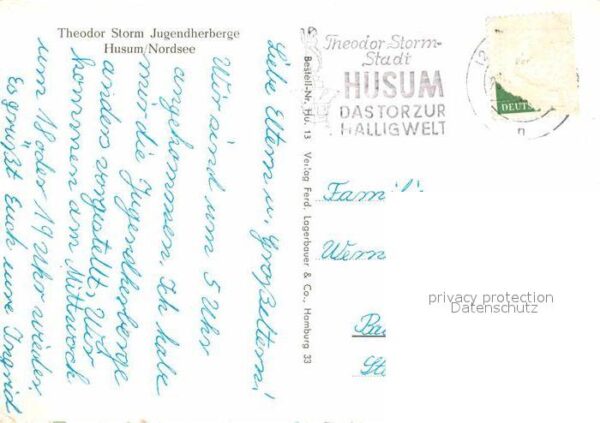 Theodor Storm Jugendherberge
Husum/Nordsee
Liebe Eltern u. Großeltern!
Wir sind um 5 Uhr
angekommen. Ich habe
mir die Jugendherberge
anders vorgestellt. Wir
kommen am Mittwoch
um 18 oder 19 Uhr wieder.
Es grüßt Euch eure Ingrid
Bestell-Nr. HU. 13 Verlag Ferd. Lagerbauer & Co., Hamburg 33
Theodor Storm-
Stadt
HUSUM
DAS TOR ZUR
HALLIGWELT
DEUTS
Famili
Wern
privacy protection
Datenschutz